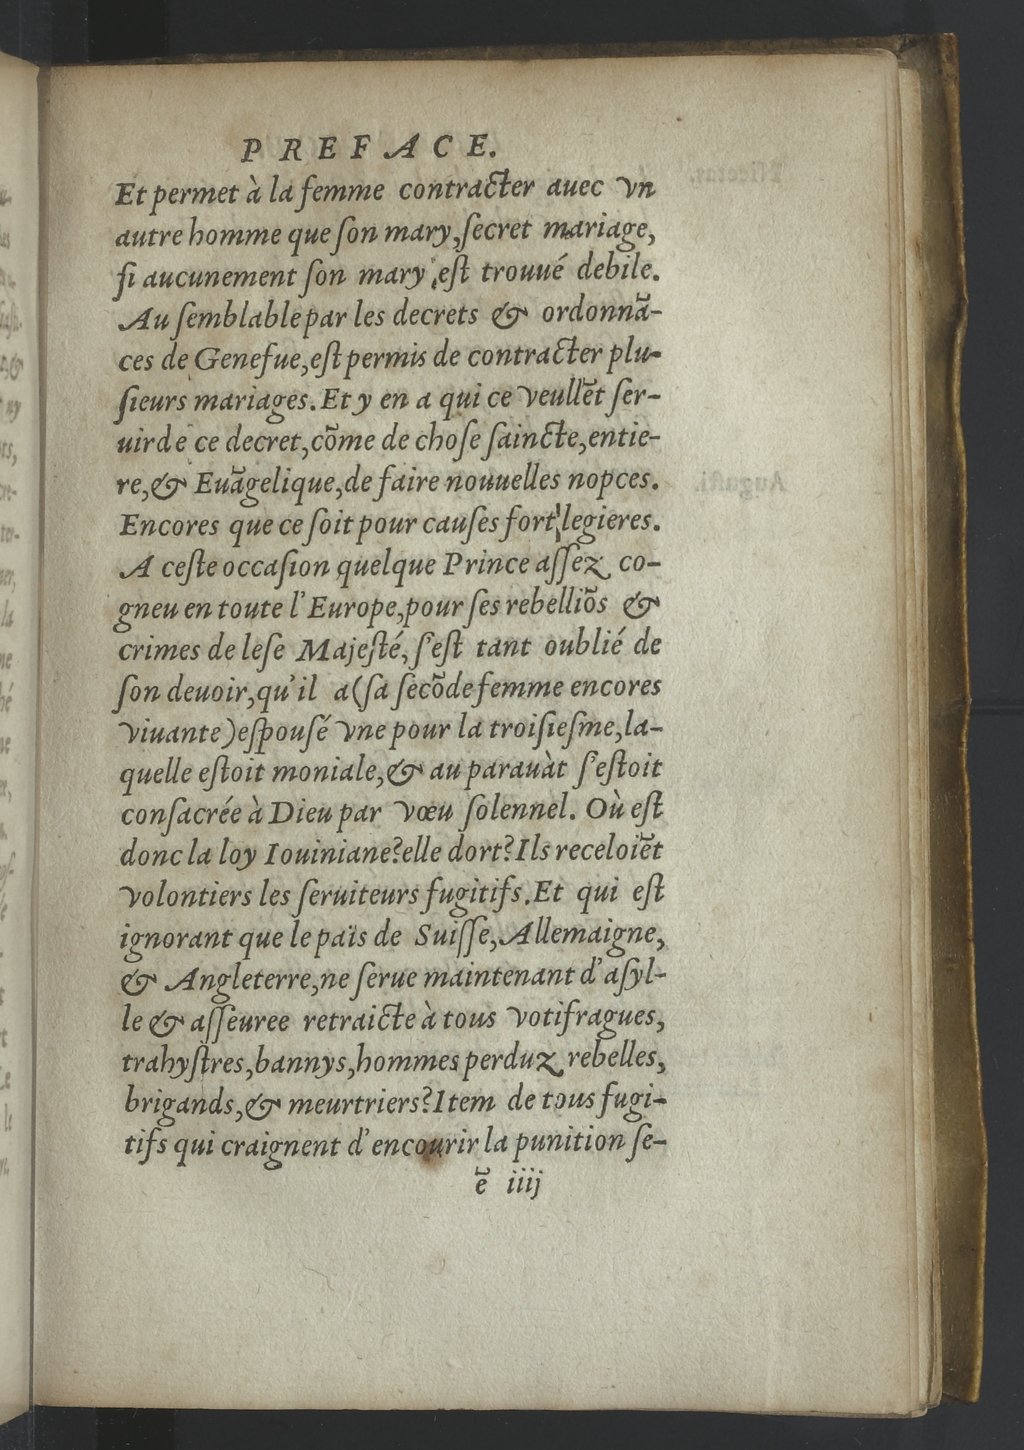 PREFACE.
Et permet à la femme contracter auec vn
autre homme que ſon mary, ſecret mariage,
ſi aucunement ſon mary eſt trouué debile.
Au ſemblable par les decrets & ordonnā-
ces de Genefue, eſt permis de contracter plu-
ſieurs mariages. Et y en a qui ce veullēt ſer-
uir de ce decret, cōme de choſe ſaincte, entie-
re, & Euāgelique, de faire nouuelles nopces.
Encores que ce ſoit pour cauſes fort legieres.
A ceſte occaſion quelque Prince aſſez co-
gneu en toute l'Europe, pour ſes rebelliōs &
crimes de leſe Majeſté, ſ'eſt tant oublié de
ſon deuoir, qu'il a (ſa ſecōde femme encores
viuante) eſpouſé vne pour la troiſieſme, la-
quelle eſtoit moniale, & au parauàt ſ'eſtoit
conſacrée à Dieu par vœu ſolennel. Où eſt
donc la loy Iouiniane? elle dort? Ils receloiēt
volontiers les ſeruiteurs fugitifs. Et qui eſt
ignorant que le païs de Suiſſe, Allemaigne,
& Angleterre, ne ſerue maintenant d'aſyl-
le & aſſeuree retraicte à tous votifragues,
trahyſtres, bannys, hommes perduz rebelles,
brigands, & meurtriers? Item de tous fugi-
tifs qui craignent d'encourir la punition ſe-
ē iiij